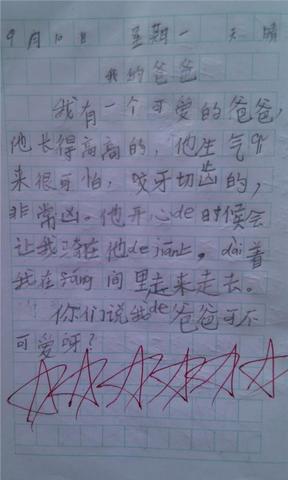 9月10日 星期一 天晴
我的爸爸
我有一个可爱的爸爸,
他长得高高的,他生气qi
来很可怕,咬牙切齿的,
非常凶。他开心de时候会
让我骑在他de jian上,dai着
我在fang间里走来走去。
你们说我de爸爸可不
可爱呀?